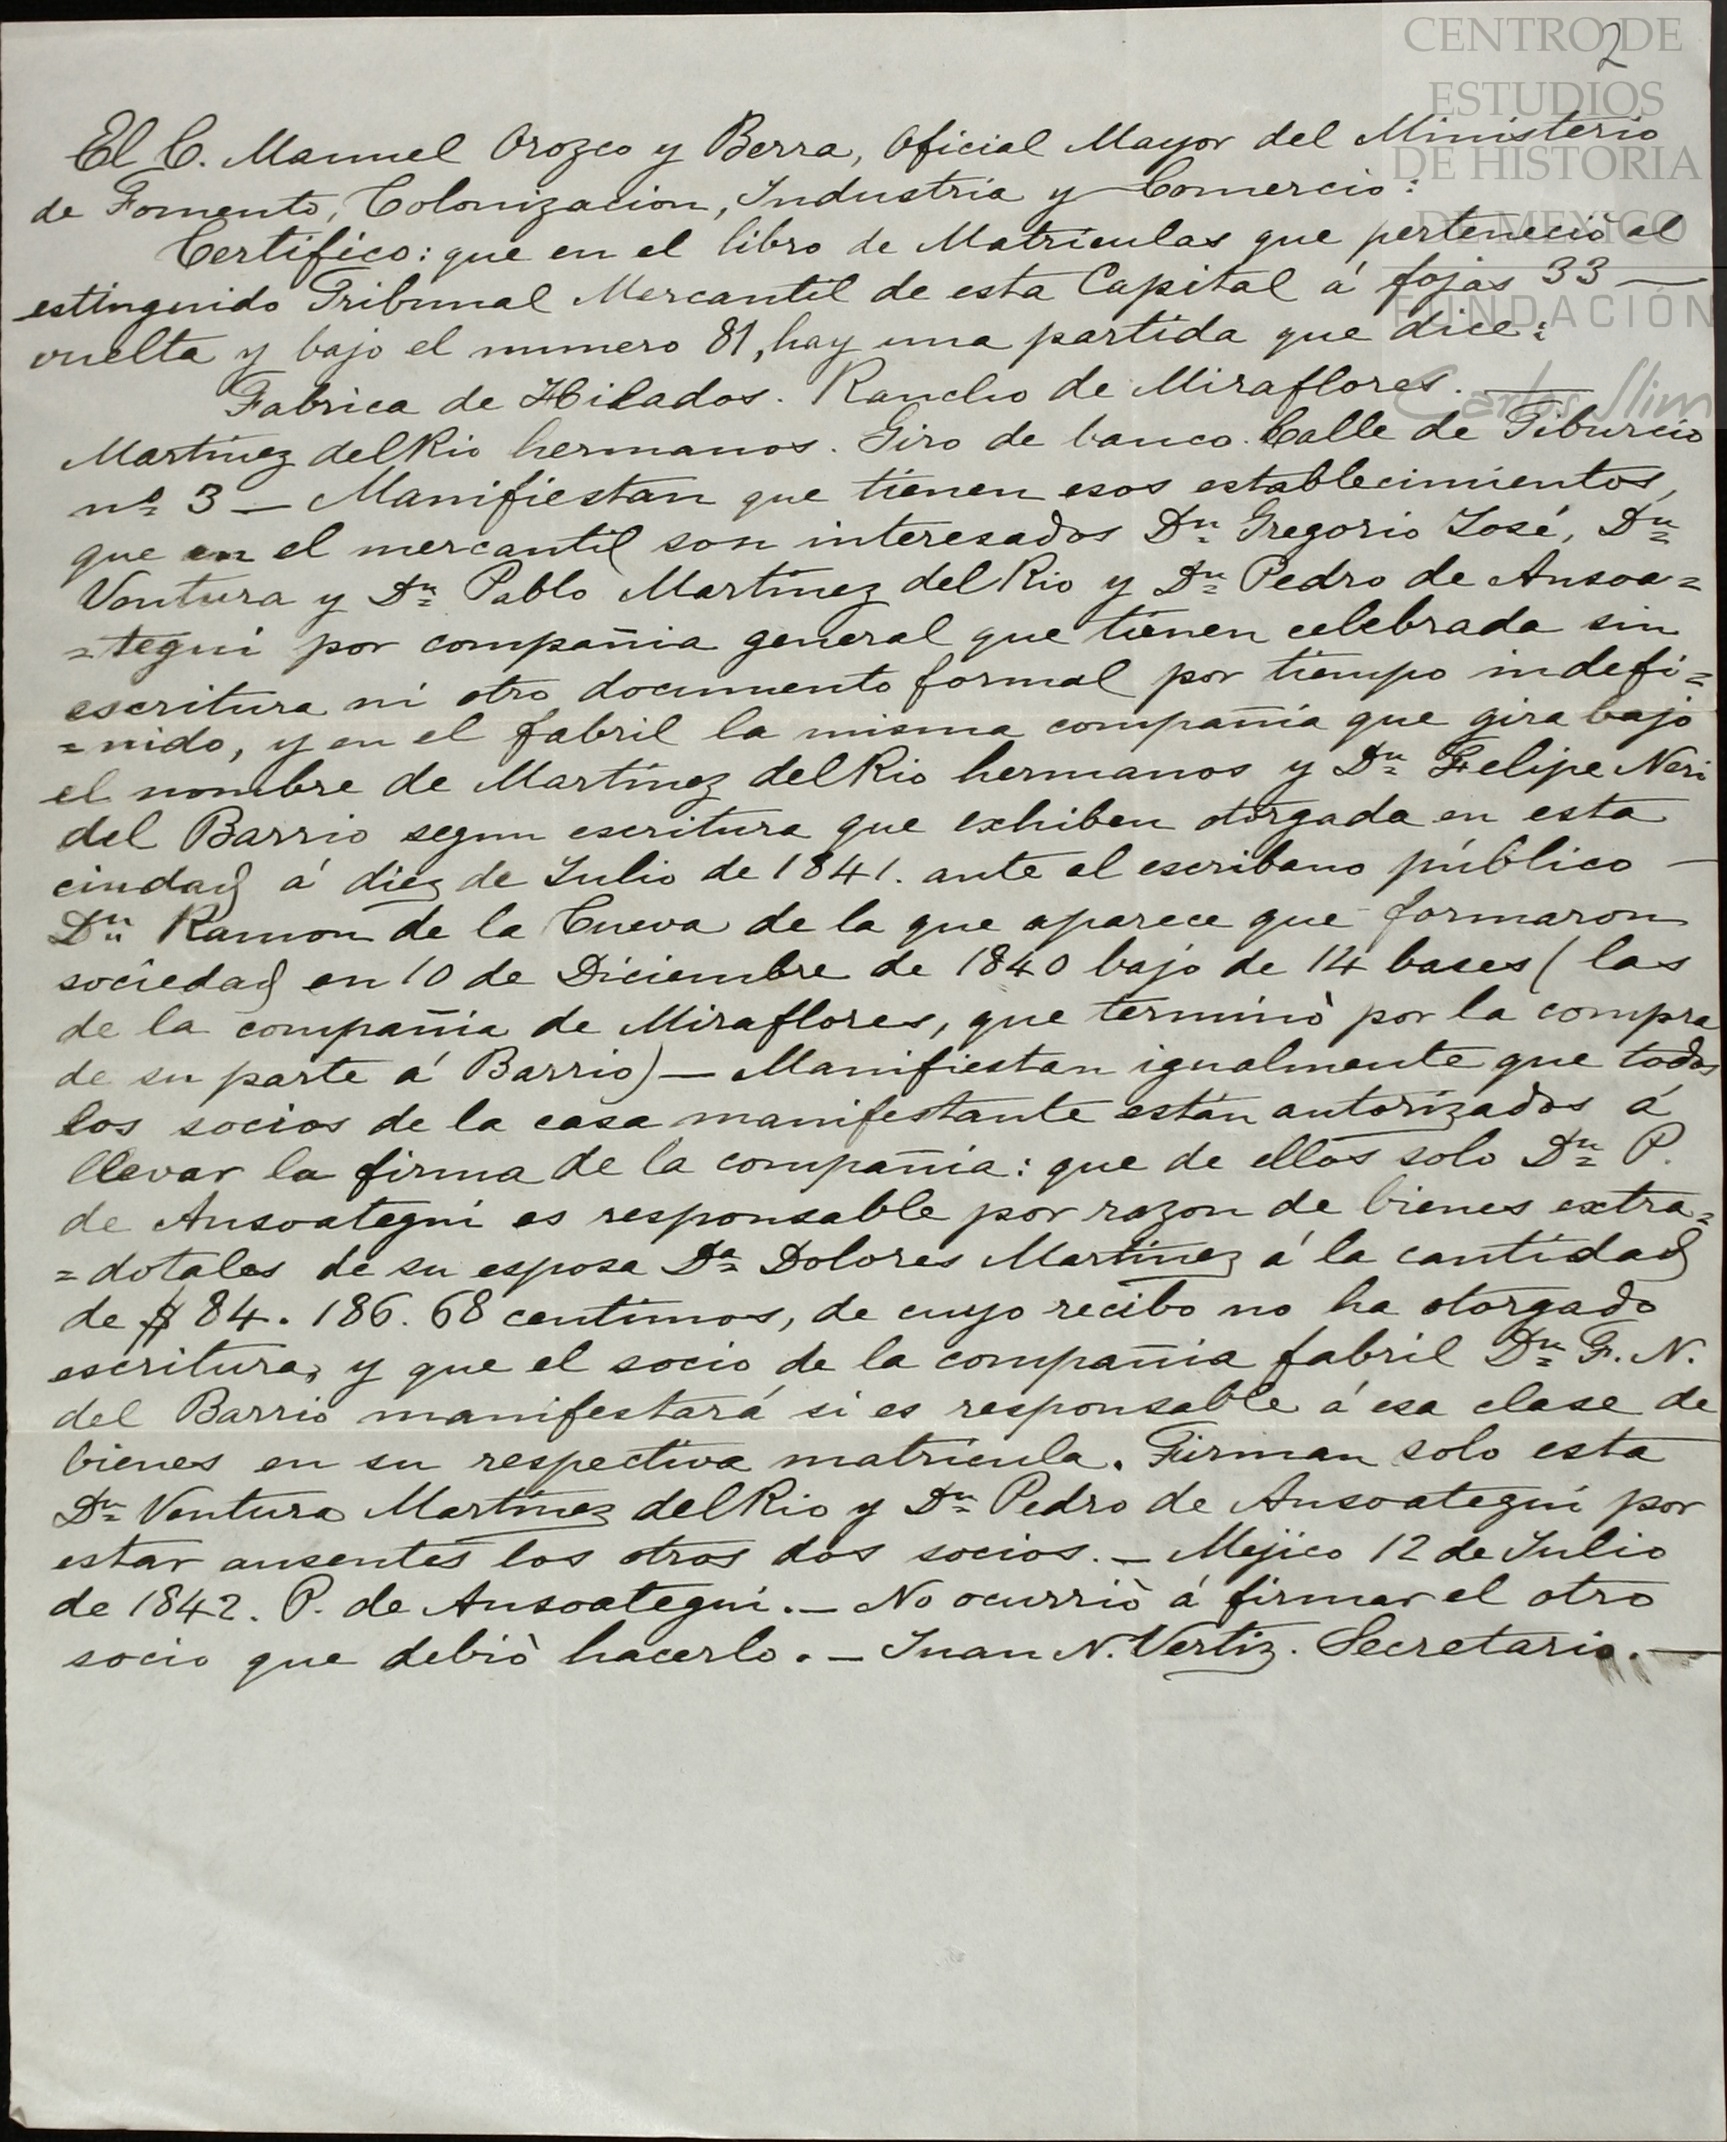 CENTRO DE
ESTUDIOS
DE HISTORIA
DE MEXICO
FUNDACIÓN
Carlos Slim
2
El C. Manuel Orozco y Berra, Oficial Mayor del Ministerio
de Fomento, Colonizacion, Industria y Comercio:
Certifico: que en el libro de Matriculas que perteneció al
estinguido Tribunal Mercantil de esta Capital á fojas 33 —
vuelta y bajo el numero 81, hay una partida que dice:
Fabrica de Hilados. Rancho de Miraflores. —
Martínez del Rio hermanos. Giro de banco. Calle de Tiburcio
nº 3 — Manifiestan que tienen esos establecimientos,
que en el mercantil son interesados Dn Gregorio José, Dn
Ventura y Dn Pablo Martínez del Rio y Dn Pedro de Ansoa=
=tegui por compañia general que tienen celebrada sin
escritura ni otro documento formal por tiempo indefi=
=nido, y en el fabril la misma compañía que gira bajo
el nombre de Martínez del Rio hermanos y Dn Felipe Neri
del Barrio segun escritura que exhiben otorgada en esta
ciudad á diez de Julio de 1841. ante el escribano público —
Dn Ramon de la Cueva de la que aparece que formaron
sociedad en 10 de Diciembre de 1840 bajo de 14 bases (las
de la compañia de Miraflores, que terminò por la compra
de su parte á Barrio) — Manifiestan igualmente que todos
los socios de la casa manifestante están autorizados á
llevar la firma de la compañia: que de ellos solo Dn P.
de Ansoategui es responsable por razon de bienes extra=
=dotales de su esposa Da Dolores Martínez á la cantidad
de $ 84. 186. 68 centimos, de cuyo recibo no ha otorgado
escritura, y que el socio de la compañia fabril Dn F. N.
del Barrio manifestará si es responsable á esa clase de
bienes en su respectiva matricula. Firman solo esta
Dn Ventura Martínez del Rio y Dn Pedro de Ansoategui por
estar ausentes los otros dos socios. — Mejico 12 de Julio
de 1842. P. de Ansoategui. — No ocurriò á firmar el otro
socio que debiò hacerlo. — Juan N. Vertiz. Secretario. —